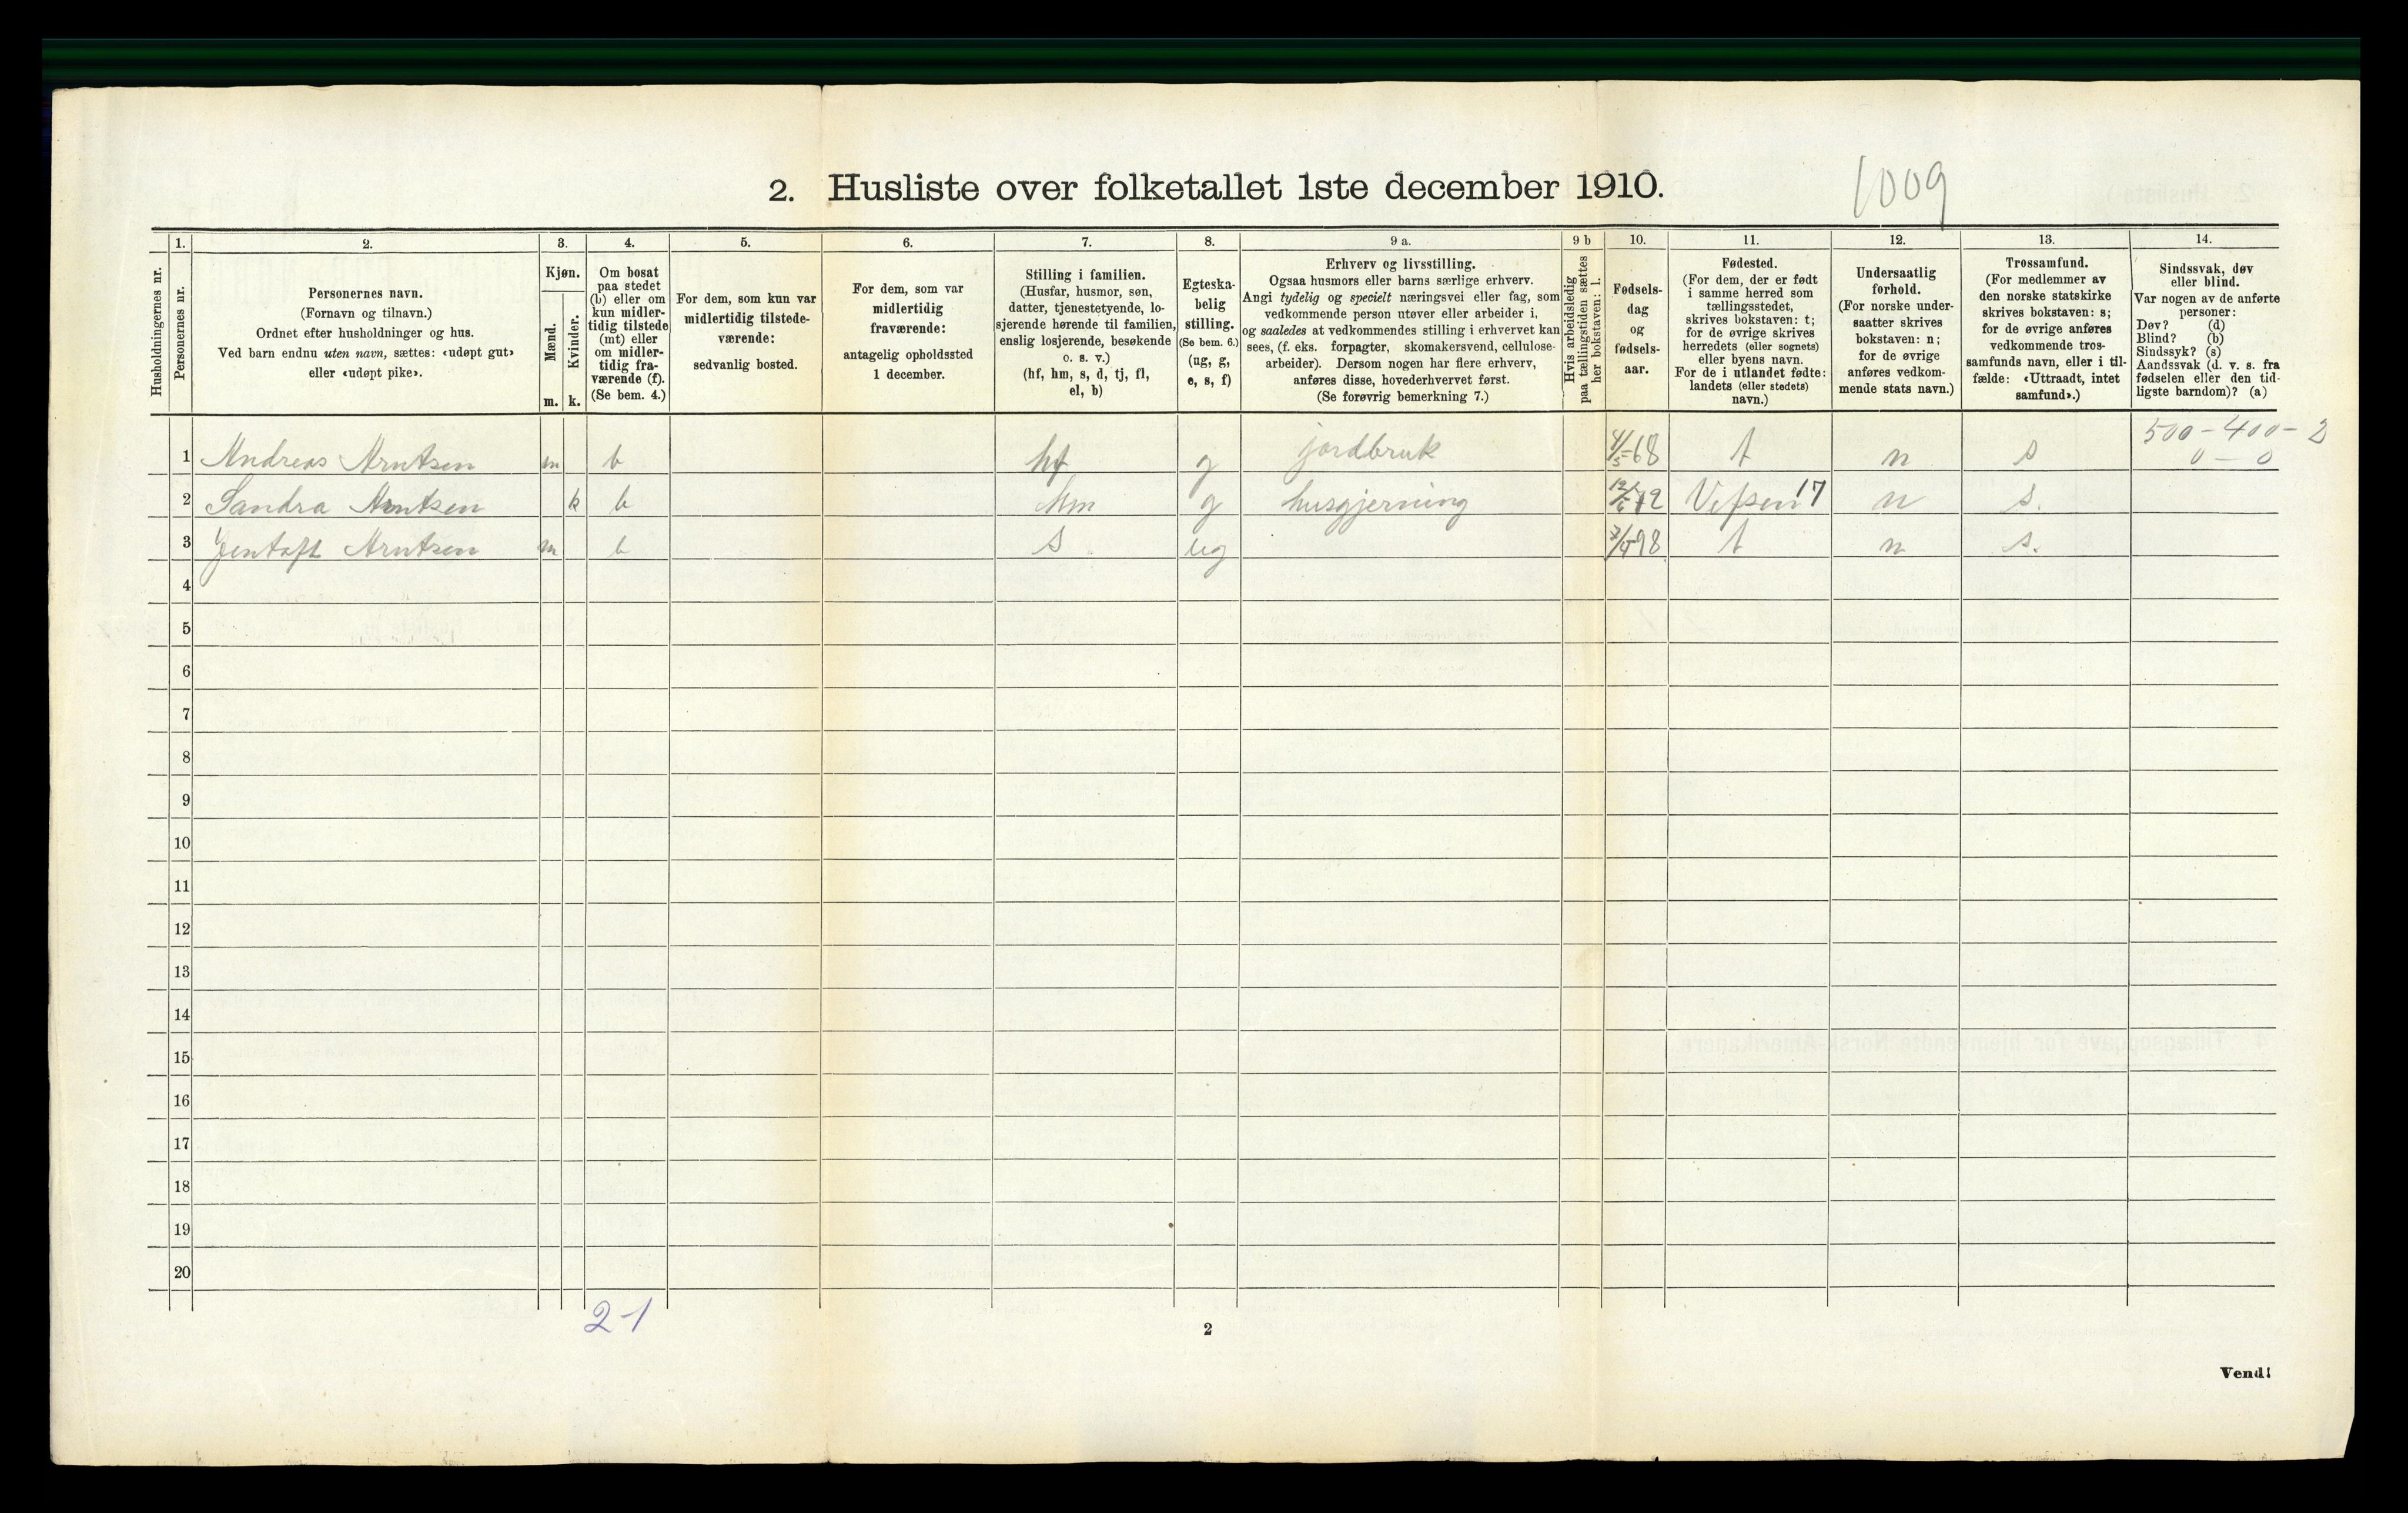 2. Husliste over folketallet 1ste december 1910.
1009
Husholdningernes nr.
1.
Personernes nr.
2.
Personernes navn.
(Fornavn og tilnavn.)
Ordnet efter husholdninger og hus.
Ved barn endnu uten navn, sættes: «udøpt gut»
eller «udøpt pike».
3.
Kjøn.
Mænd.
Kvinder.
m. k.
4.
Om bosat
paa stedet
(b) eller om
kun midler-
tidig tilstede
(mt) eller
om midler-
tidig fra-
værende (f).
(Se bem. 4.)
5.
For dem, som kun var
midlertidig tilstede-
værende:
sedvanlig bosted.
6.
For dem, som var
midlertidig
fraværende:
antagelig opholdssted
1 december.
7.
Stilling i familien.
(Husfar, husmor, søn,
datter, tjenestetyende, lo-
sjerende hørende til familien,
enslig losjerende, besøkende
o. s. v.)
(hf, hm, s, d, tj, fl,
el, b)
8.
Egteska-
belig
stilling.
(Se bem. 6.)
(ug, g,
e, s, f)
9 a.
Erhverv og livsstilling.
Ogsaa husmors eller barns særlige erhverv.
Angi tydelig og specielt næringsvei eller fag, som
vedkommende person utøver eller arbeider i,
og saaledes at vedkommendes stilling i erhvervet kan
sees, (f. eks. forpagter, skomakersvend, cellulose-
arbeider). Dersom nogen har flere erhverv,
anføres disse, hovederhvervet først.
(Se forøvrig bemerkning 7.)
9 b
Hvis arbeidsledig
paa tællingstiden sættes
her bokstaven: l.
10.
Fødsels-
dag
og
fødsels-
aar.
11.
Fødested.
(For dem, der er født
i samme herred som
tællingsstedet,
skrives bokstaven: t;
for de øvrige skrives
herredets (eller sognets)
eller byens navn.
For de i utlandet fødte:
landets (eller stedets)
navn.)
12.
Undersaatlig
forhold.
(For norske under-
saatter skrives
bokstaven: n;
for de øvrige
anføres vedkom-
mende stats navn.)
13.
Trossamfund.
(For medlemmer av
den norske statskirke
skrives bokstaven: s;
for de øvrige anføres
vedkommende tros-
samfunds navn, eller i til-
fælde: «Uttraadt, intet
samfund».)
14.
Sindssvak, døv
eller blind.
Var nogen av de anførte
personer:
Døv? (d)
Blind? (b)
Sindssyk? (s)
Aandssvak (d. v. s. fra
fødselen eller den tid-
ligste barndom)? (a)
500 - 400 - 2
0 - 0
1 Andreas Arntsen m b hf g jordbruk 4/5-68 t n s
2 Sandra Arntsen k b hm g husgjerning 72 Vefsen 17 n s.
3 Jentoft Arntsen m b s ug 98 t n s.
4
5
6
7
8
9
10
11
12
13
14
15
16
17
18
19
20
2-1
2
Vend!